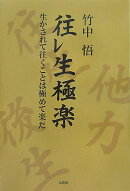 竹中 悟
往レ生極楽
生かされて往くことは極めて楽だ
他力
文芸社